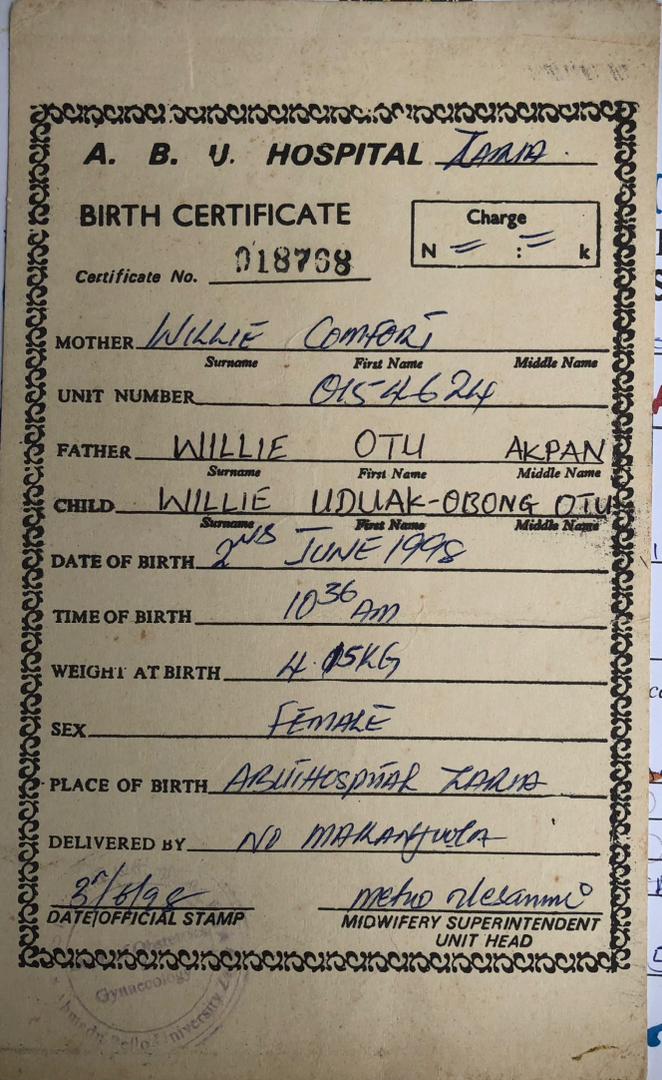 A. B. U. HOSPITAL ZARIA.
BIRTH CERTIFICATE
Charge
N = : = k
Certificate No. 018768
MOTHER WILLIE COMFORT
Surname First Name Middle Name
UNIT NUMBER 0154624
FATHER WILLIE OTU AKPAN
Surname First Name Middle Name
CHILD WILLIE UDUAK-OBONG OTU
Surname First Name Middle Name
DATE OF BIRTH 2ND JUNE 1998
TIME OF BIRTH 10 36 AM
WEIGHT AT BIRTH 4.15KG
SEX FEMALE
PLACE OF BIRTH ABUTHOSPITAL ZARIA
DELIVERED BY NO MAKANJUOLA
3/6/98
DATE/OFFICIAL STAMP
MIDWIFERY SUPERINTENDENT
UNIT HEAD
Gynaecology
Ahmadu Bello University